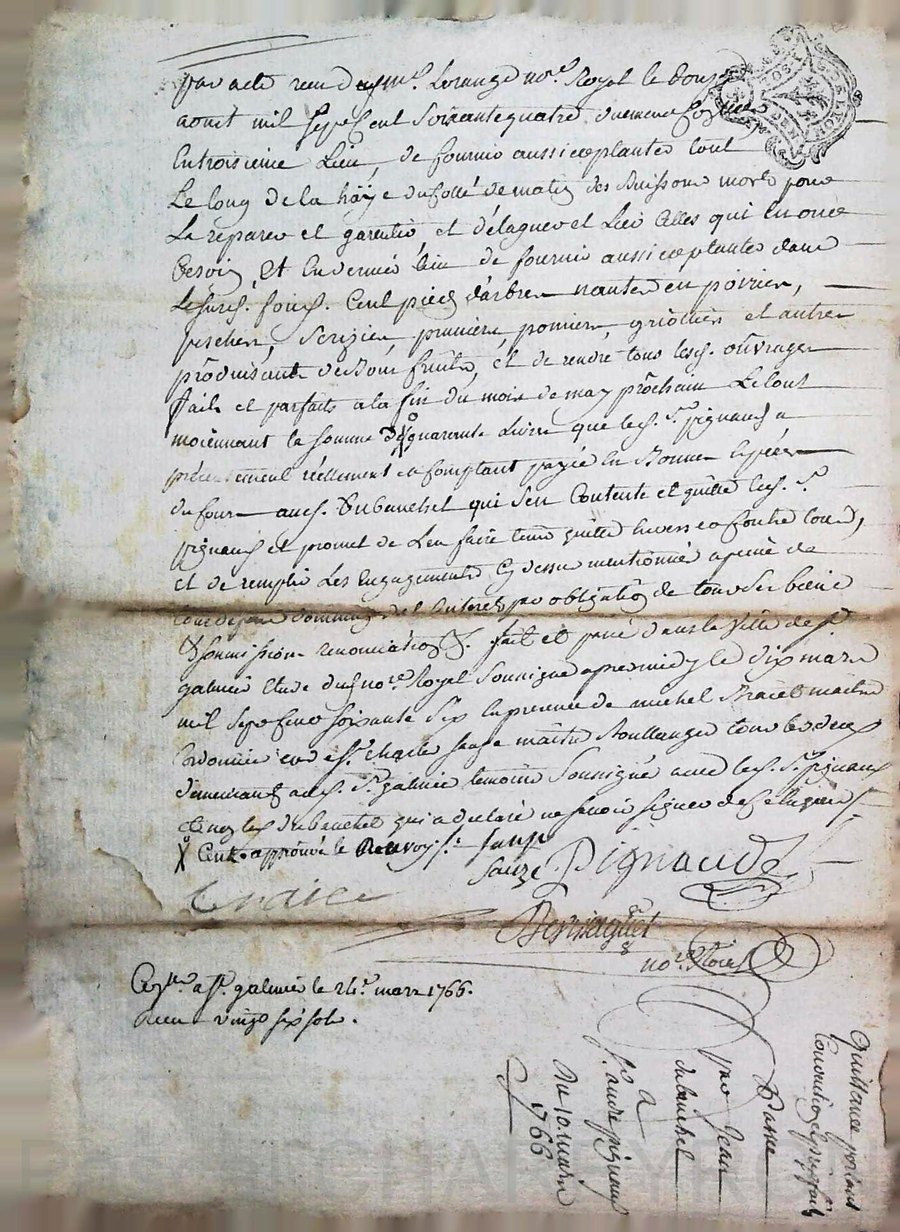 par acte recu dud. me. Lorange nore. Royal le douze
aoust mil sept cent soixante quatre
En troisieme Lieu, de fournir aussi et planter tout
Le long de la haÿe du fossé de matin des Buissons morts pour
La reparer et garentir, et d'élaguer et Lier Celles qui en ont
Besoin, Et En dernier Lieu de fournir aussi et planter dans
Lesusd. fonds. Cent pieds d'arbres nantés en poirier,
peschers, Serizier, pruniers, pomiers, griottiers et autres
prôduisants de Bons fruits, et de rendre tous lesd. oüvrages
faits et parfaits a la fin du mois de may prôchain Le tout
moiennant la somme de quarante Livres que led. Sr. pignaud a
présentement réellement et Comptant payée En Bonnes Espèces
du Cours aud. Dubanchet qui s'en Contente et quitte led. Sr.
pignaud et promet de L'en faire tenir quitte Envers et Contre tous,
et de remplir Les Engagements Cy dessus mentionnés a peine de
tous depens dommages et Interets par obligation de tous ses biens
Soumissions renonciations &. fait et passé dans la Ville de St.
galmier Etude dud. nore. Royal Soussigné apres midy le dix mars
mil sept Cent soixante Six En presence de michel Bracet maitre
Cordonnier et de sr. Charles Sauze maitre Boullanger tous les deux
demeurants aud. St. galmier temoins Soussignés avec led. Sr. pignaud
Et non led. Dubanchet qui a declaré ne savoir signer de Ce Enquis
X Cent approuvé le Renvoy
Sauze Pignaud
nore. Roial
Con.lle a St. galmier le 24e. mars 1766.
Recu vingt six sols.
Quittance portant
Convention
Passée
par Jean
dubanchet
a
Sr. andre pignaud
Du 10. mars
1766